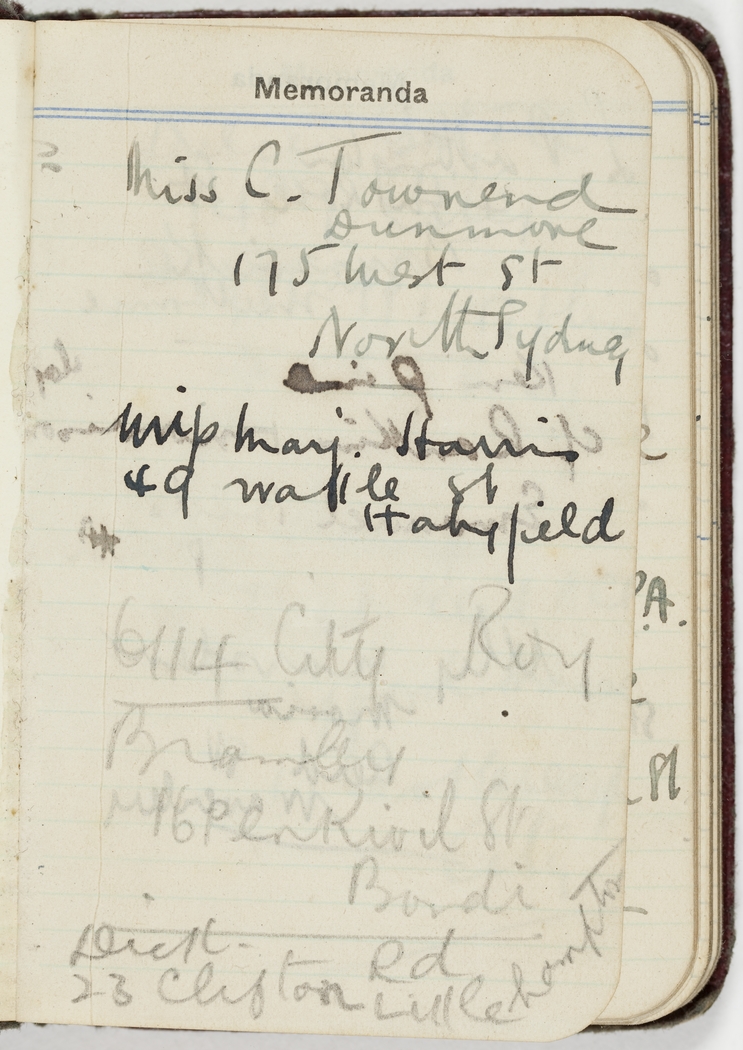 Memoranda
Miss C. Townend
Dunmore
175 West St
North Sydney
Miss Marj. Harris
49 Wattle St
Haberfield
6114 City Roy
Bramley
16 Penkivil St
Bondi
Dick.
23 Clifton Rd
Littlehampton
P.A.
St